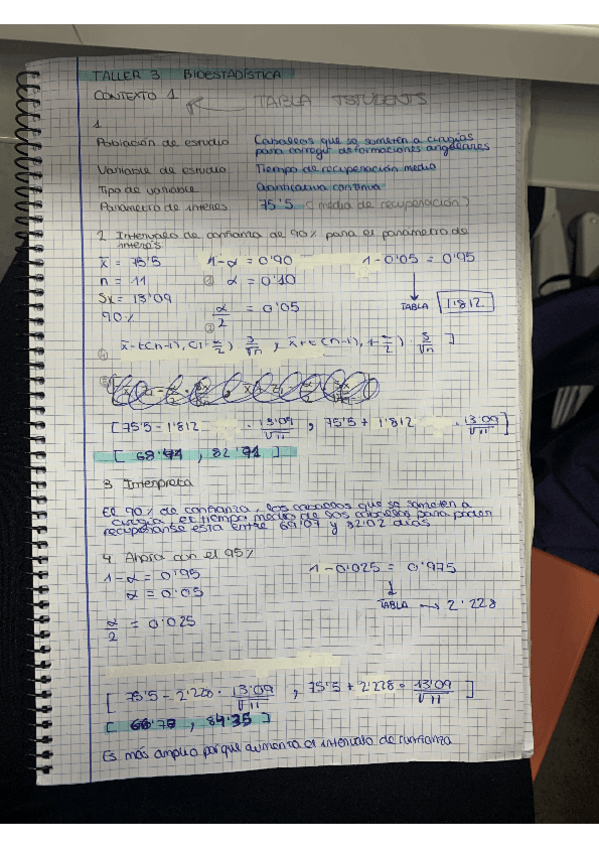 TALLER 3 BIOESTADÍSTICA
CONTEXTO 1 TABLA TSTUDENTS
1.
Población de estudio Caballos que se someten a cirugías
para corregir deformaciones angulares
Variable de estudio Tiempo de recuperación medio
Tipo de variable Cuantitativa continua
Parámetro de interés 75'5 (media de recuperación)
2. Intervalo de confianza de 90% para el parámetro de
interés
x̄ = 75'5 1-α = 0'90 1-0'05 = 0'95
n = 11 α = 0'10
Sx = 13'09 α/2 = 0'05 TABLA 1'812
90%
x̄-t(n-1), (1-α/2) S/√n ; x̄+t(n-1), 1-α/2) · S/√n ]
[75'5-1'812 · 13'09/√11 , 75'5+1'812 · 13'09/√11]
[ 68' , 82' ]
3. Interpreta
El 90% de confianza, los caballos que se someten a
cirugía, el tiempo medio de los caballos para poder
recuperarse esta entre 69'07 y 82'02 días
4. Ahora con el 95%
1-α = 0'95 1-0'025 = 0'975
α = 0'05
TABLA → 2'228
α/2 = 0'025
[ 75'5-2'228· 13'09/√11 , 75'5+2'228· 13'09/√11 ]
[ 66' , 84'35 ]
Es más amplio porque aumenta el intervalo de confianza